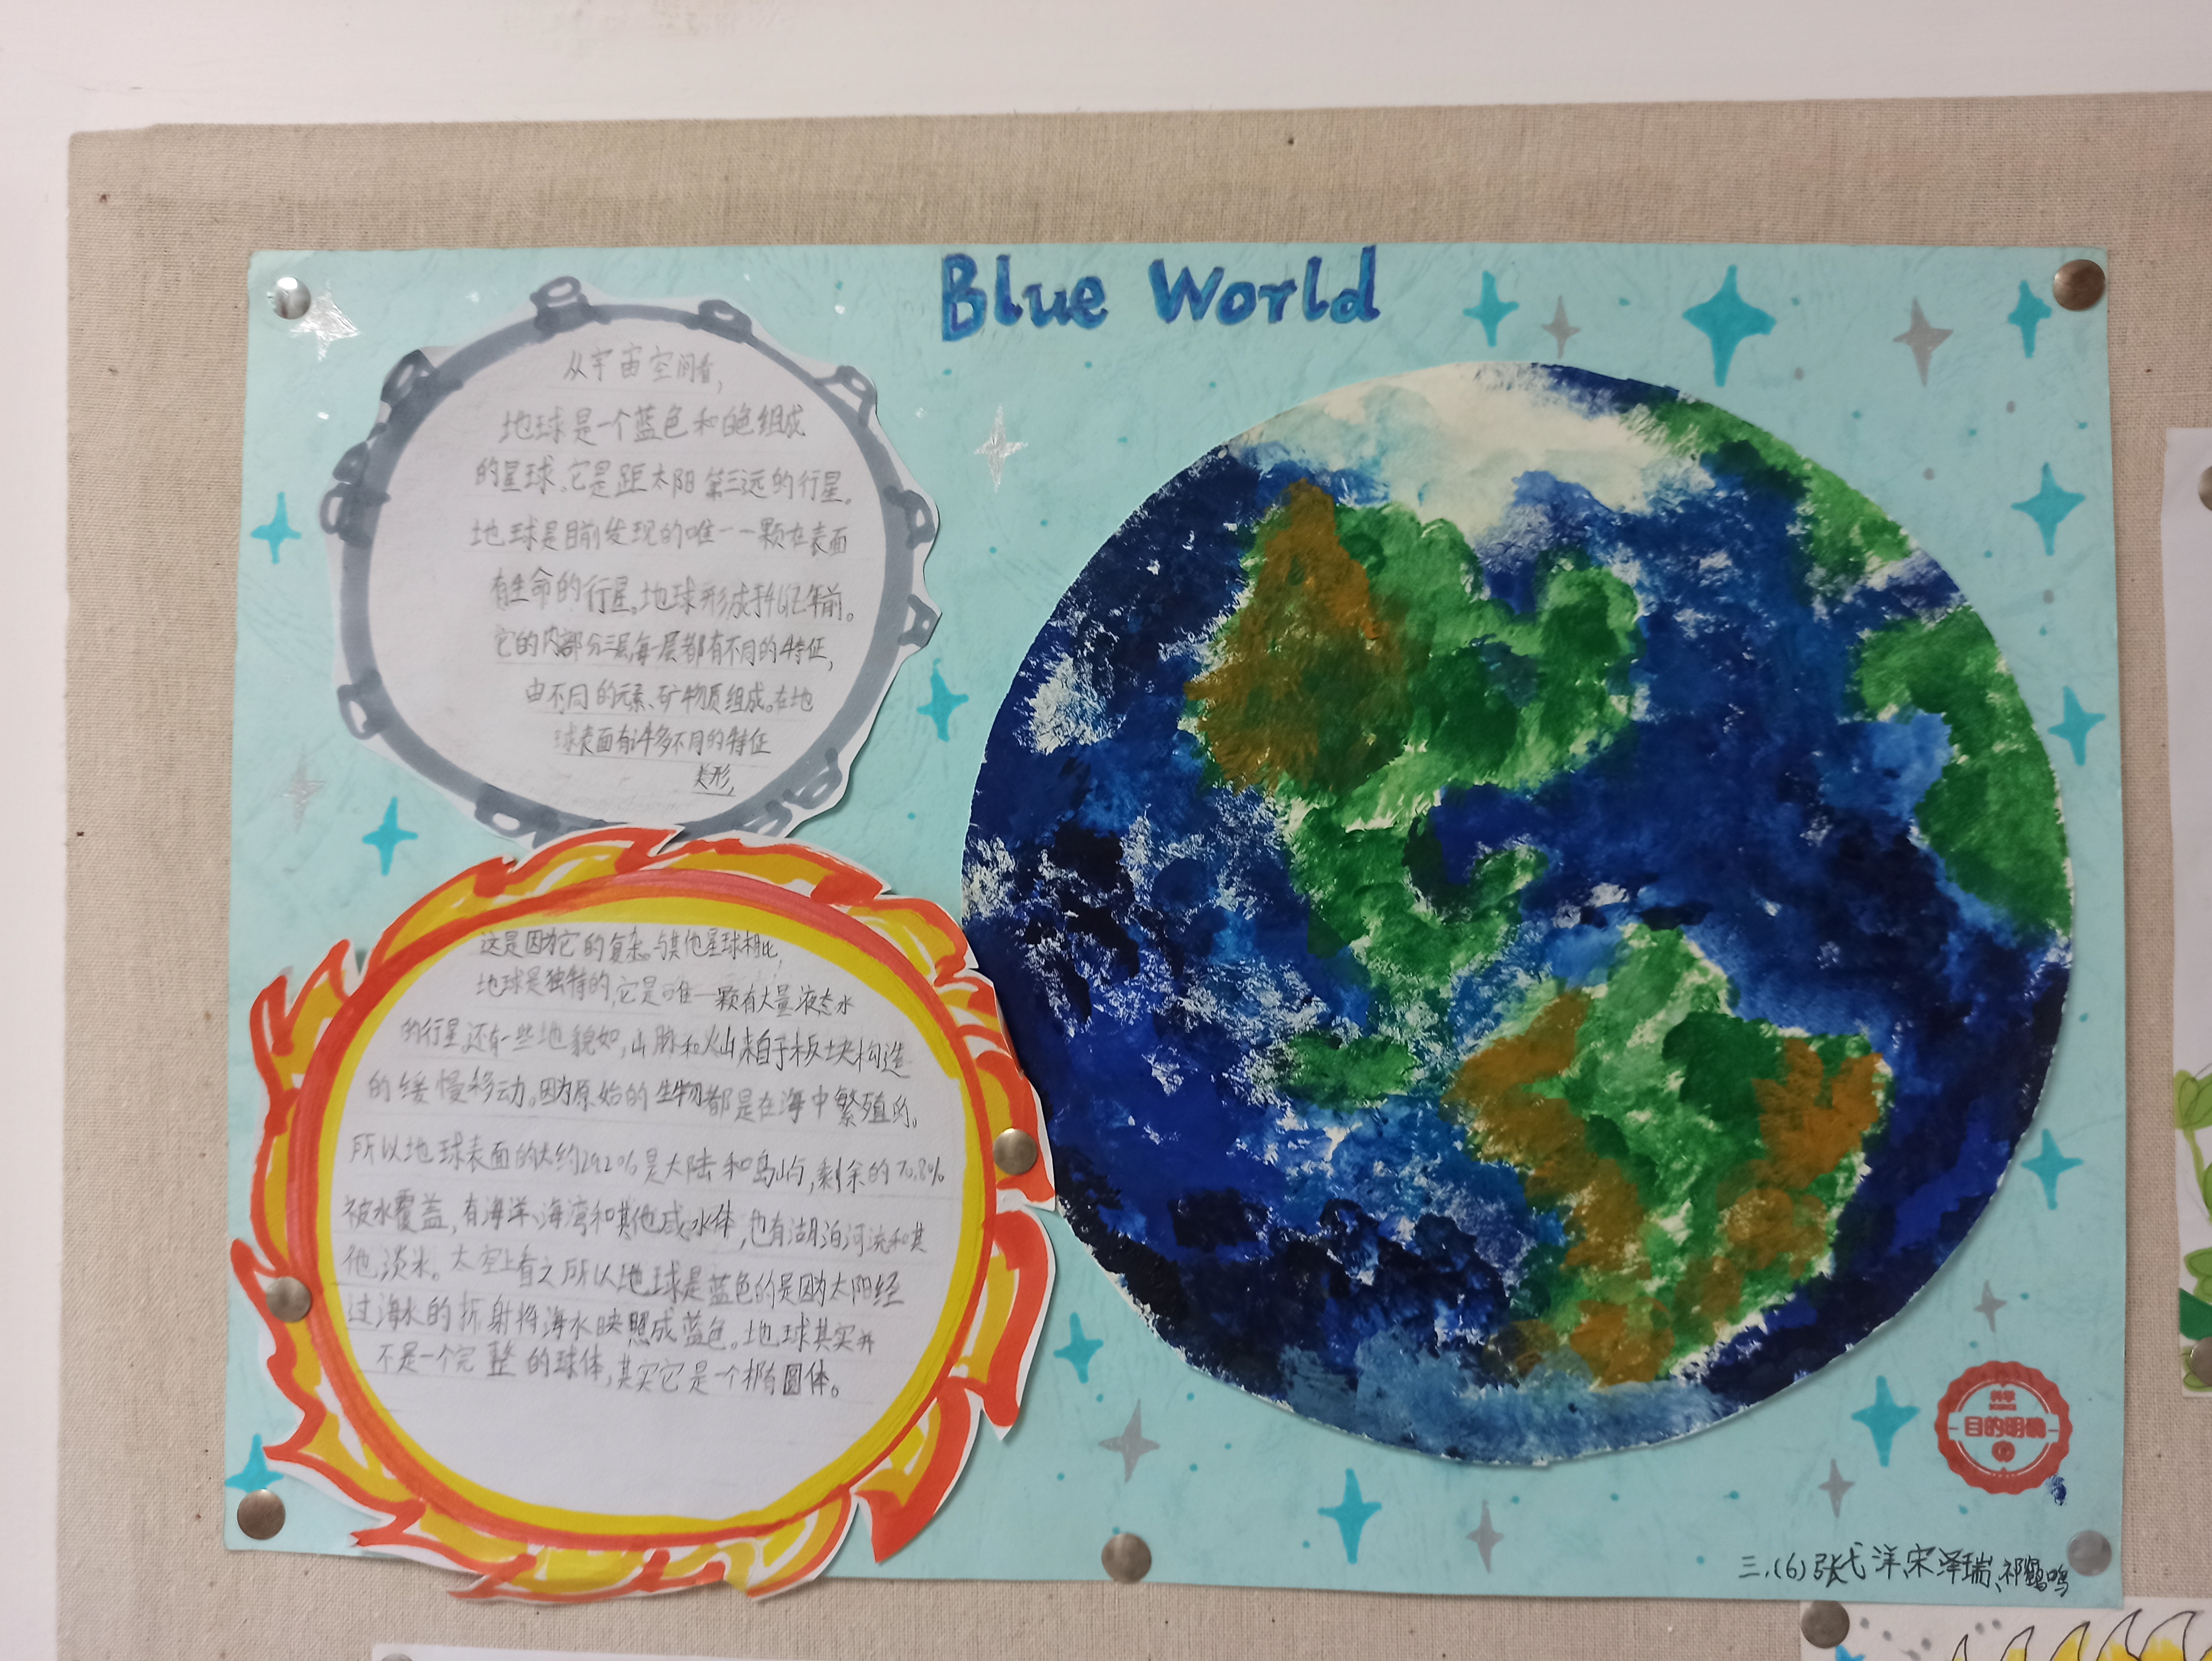 Blue World
从宇宙空间看,
地球是一个蓝色和白色组成
的星球。它是距太阳第三远的行星。
地球是目前发现的唯一一颗在表面
有生命的行星。地球形成于46亿年前。
它的内部分三层,每一层都有不同的特征,
由不同的元素、矿物质组成。在地
球表面有许多不同的特征
类形,
这是因为它的复杂。与其他星球相比,
地球是独特的,它是唯一颗有大量液态水
的行星,还有一些地貌如,山脉和火山来自于板块构造
的缓慢移动。因为原始的生物都是在海中繁殖的。
所以地球表面的大约29.2%是大陆和岛屿,剩余的70.8%
被水覆盖,有海洋、海湾和其他咸水体,也有湖泊河流和其
他淡水。太空上看之所以地球是蓝色的是因为太阳经
过海水的折射将海水映照成蓝色。地球其实并
不是一个完整的球体,其实它是一个椭圆体。
科学
SCIENCE
目的明确
三.(6)张弋洋、宋泽瑞、祁鹤鸣